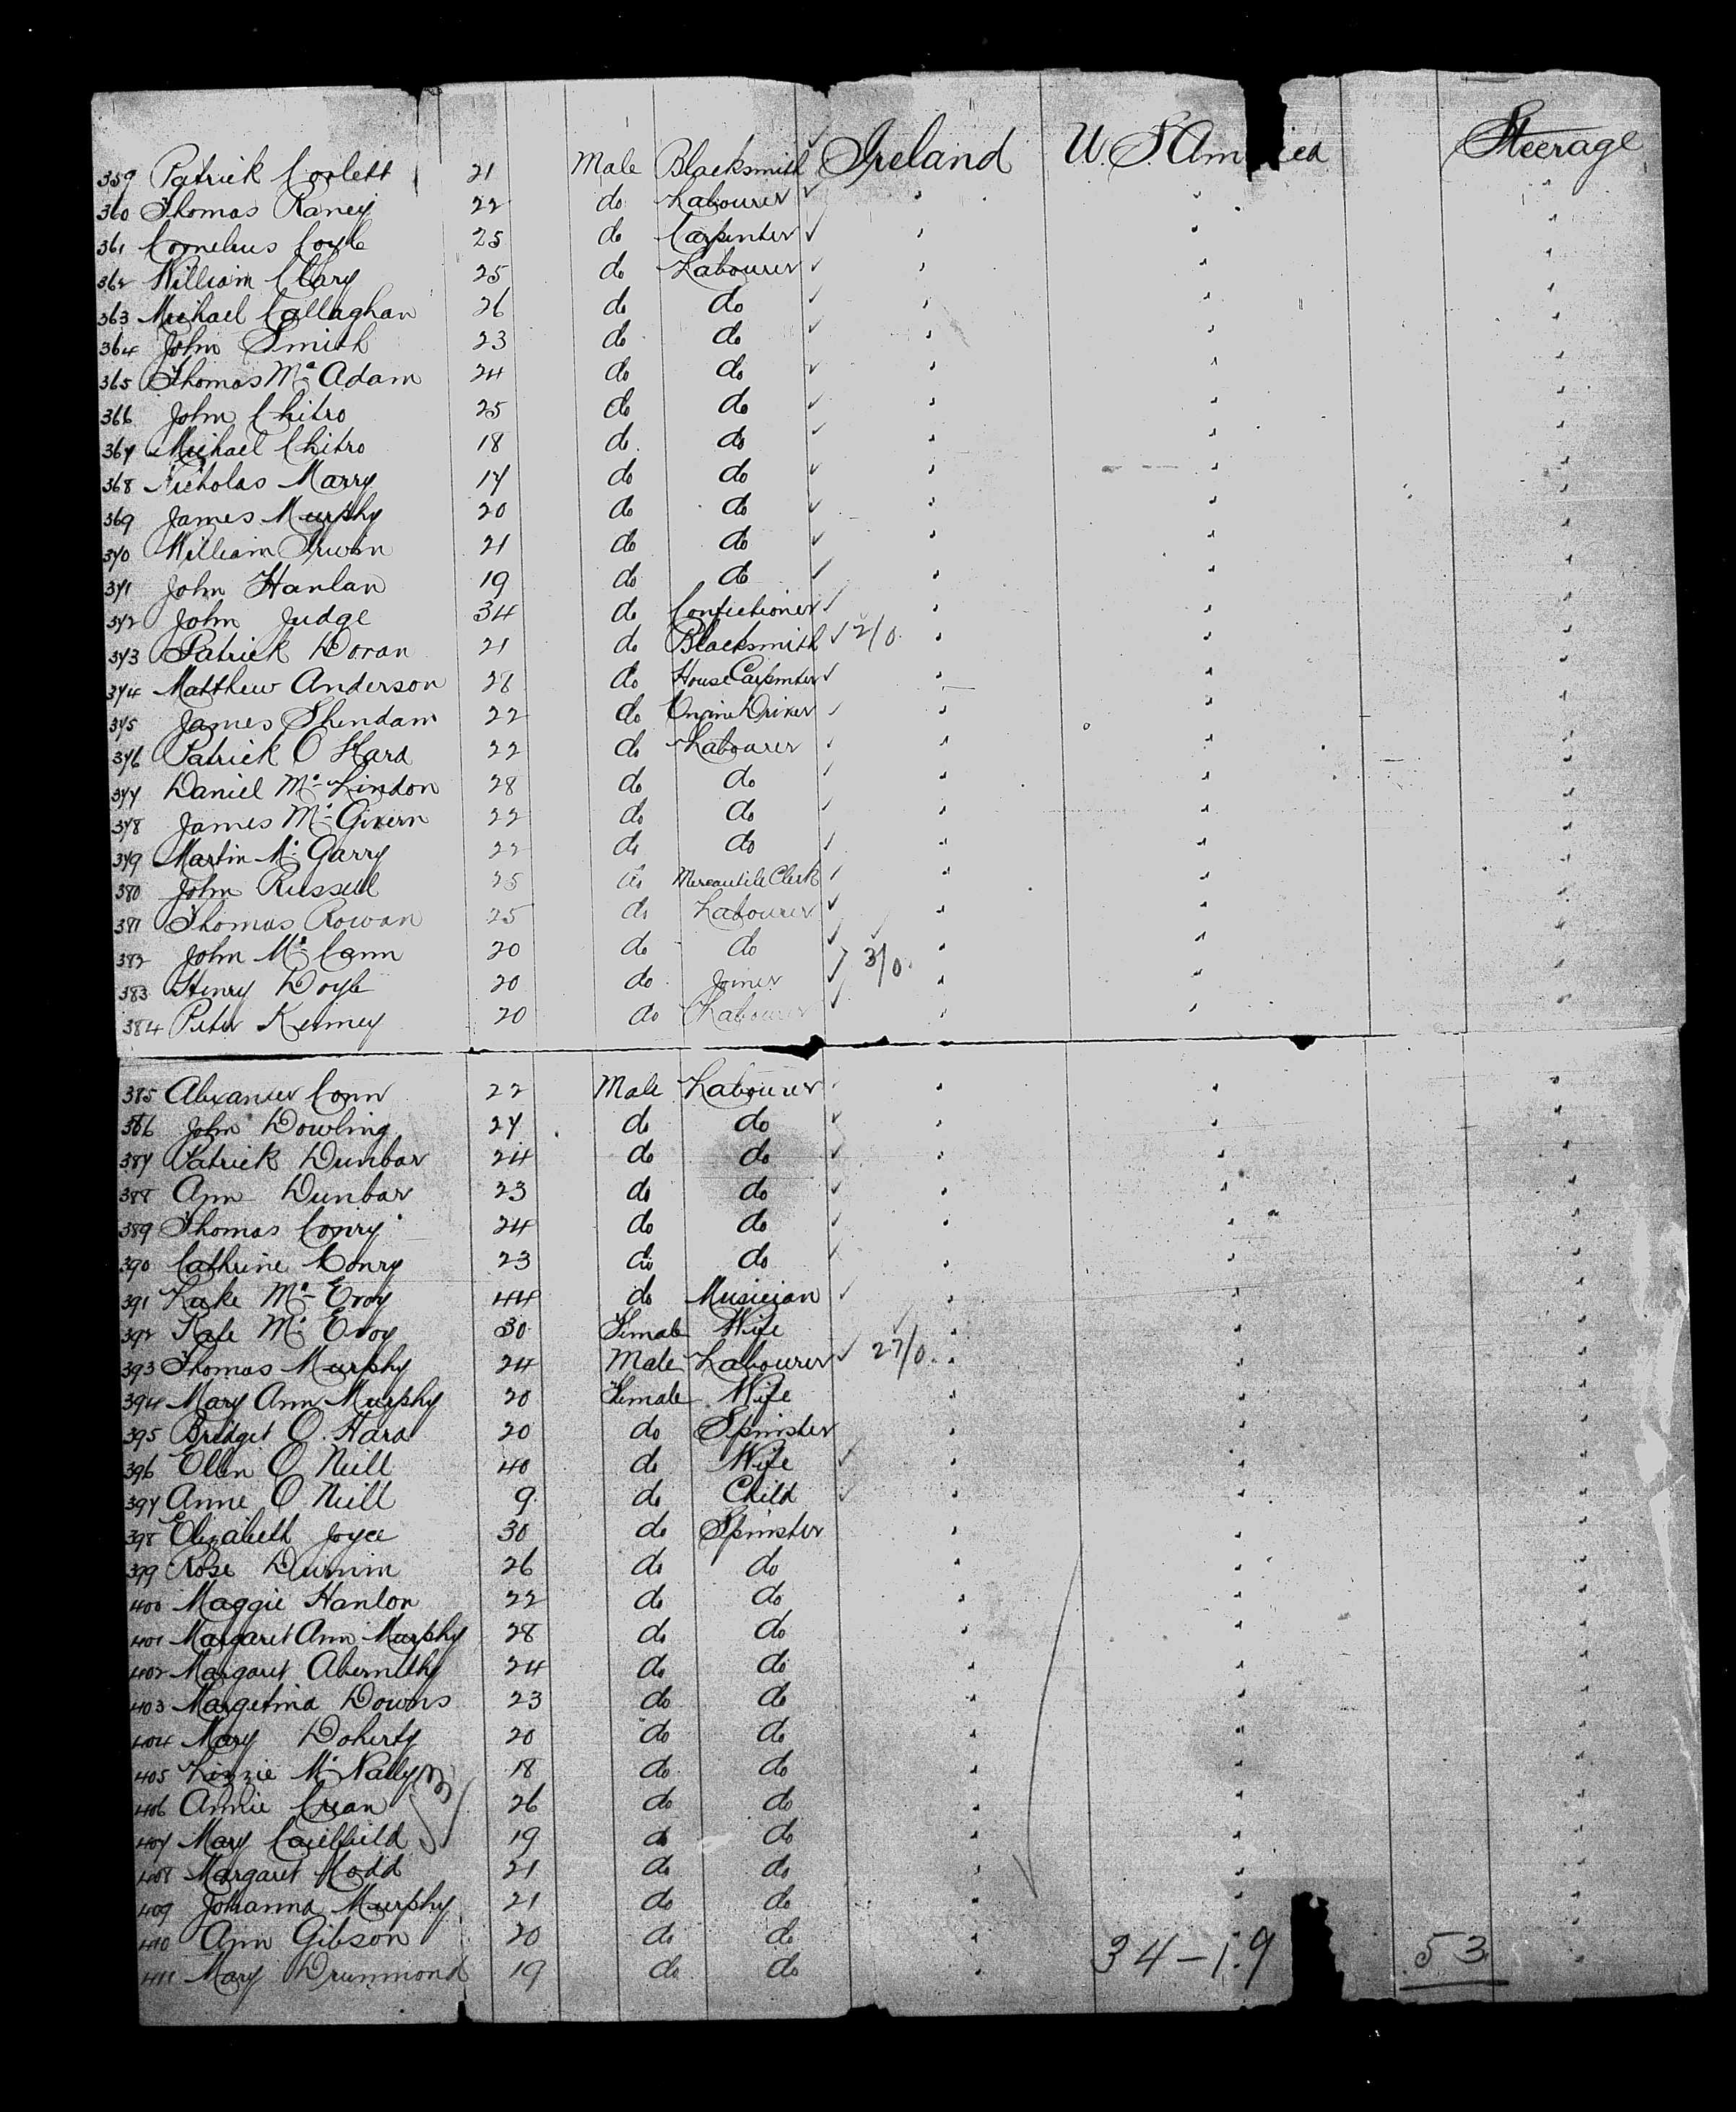 359 Patrick Corlett 21 Male Blacksmith ✓ Ireland U.S. Am ica Steerage
360 Thomas Raney 22 do Labourer ✓ " " "
361 Cornelius Coyle 25 do Carpenter ✓ " " "
362 William Clary 25 do Labourer ✓ " " "
363 Michael Callaghan 26 do do ✓ " " "
364 John Smith 23 do do ✓ " " "
365 Thomas Mc Adam 24 do do ✓ " " "
366 John Chitro 25 do do ✓ " " "
367 Michael Chitro 18 do do ✓ " " "
368 Nicholas Marry 17 do do ✓ " " "
369 James Murphy 20 do do ✓ " " "
370 William Irwin 21 do do ✓ " " "
371 John Hanlan 19 do do ✓ " " "
372 John Judge 34 do Confectioner ✓ " " "
373 Patrick Doran 21 do Blacksmith ✓ 2/0 " " "
374 Matthew Anderson 28 do House Carpenter ✓ " " "
375 James Shendam 22 do Engine Driver ✓ " " "
376 Patrick O Hara 22 do Labourer ✓ " " "
377 Daniel Mc Lindon 28 do do ✓ " " "
378 James Mc Givern 22 do do ✓ " " "
379 Martin Mc Garry 22 do do ✓ " " "
380 John Russell 25 do Mercantile Clerk ✓ " " "
381 Thomas Rowan 25 do Labourer ✓ " " "
382 John Mc Cann 20 do do ✓ 3/0 " " "
383 Henry Doyle 20 do Joiner ✓ " " "
384 Peter Kenney 20 do Labourer ✓ " " "
385 Alexander Conn 22 Male Labourer ✓ " " "
386 John Dowling 27 do do ✓ " " "
387 Patrick Dunbar 24 do do ✓ " " "
388 Ann Dunbar 23 do do ✓ " " "
389 Thomas Conry 24 do do ✓ " " "
390 Cathrine Conry 23 do do ✓ " " "
391 Luke Mc Evoy 44 do Musician ✓ " " "
392 Kate Mc Evoy 30 Female Wife ✓ " " "
393 Thomas Murphy 24 Male Labourer ✓ 27/0 " " "
394 Mary Ann Murphy 20 Female Wife " " "
395 Bridget O. Hara 20 do Spinster " " "
396 Ellen O Neill 40 do Wife ✓ " " "
397 Anne O. Neill 9 do Child ✓ " " "
398 Elizabeth Joyce 30 do Spinster " " "
399 Rose Durnin 26 do do " " "
400 Maggie Hanlon 22 do do " " "
401 Margaret Ann Murphy 28 do do " " "
402 Margaret Abernethy 24 do do " " "
403 Margetina Downs 23 do do " " "
404 Mary Doherty 20 do do " " "
405 Lizzie Mc Nally 18 do do " " "
406 Annie Crean 26 do do " " "
407 Mary 19 do do " " "
408 Margaret 21 do do " " "
409 Johanna Murphy 21 do do " " "
410 Ann Gibson 20 do do " " "
411 Mary Drummond 19 do do " 34-19 53 "